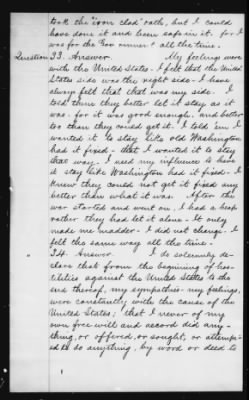 took the "iron clad" oath, but I could
have done it and been safe in it. for I
was for the Government all the time.
Question 33. Answer. My feelings were
with the United States. I felt that the United
States side was the right side - I have
always felt that that was my side. I
told them they better let it stay as it
was. for it was good enough, and better
too than they could get it. I told 'em I
wanted it to stay like old Washington
had it fixed - that I wanted it to stay
that way. I used my influence to have
it stay like Washington had it fixed - I
knew they could not get it fixed any
better than what it was. After the
war started and went on, I had a heap
rather they had let it alone - It only
made me madder - I did not change. I
felt the same way all the time -
34. Answer. I do solemnly de-
clare that from the beginning of hos-
tilities against the United States to the
end thereof, my sympathies my feelings,
were constantly with the cause of the
United States; that I never of my
own free will and accord did any-
thing, or offered, or sought, or attempt-
ed to do anything, by word or deed to